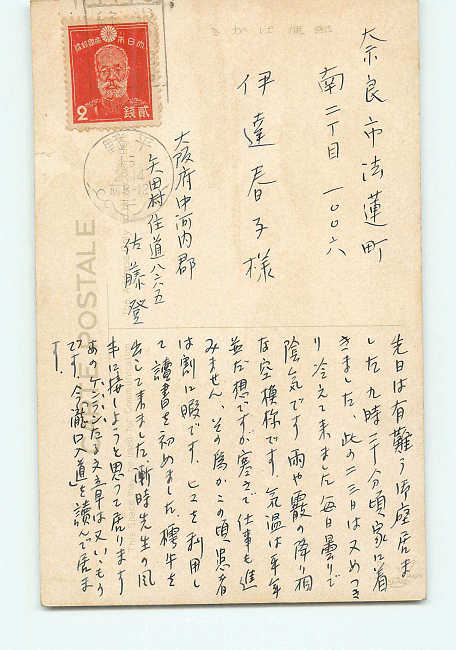 奈良市法蓮町
南二丁目一〇〇六
伊達春子様
大阪府中河内郡
矢田村住道八六五
佐藤登
きかは便郵
大日本帝國郵便
2
貳錢
POSTALE
先日は有難う御座居ま
した九時二十分頃家に着
きました、此の二三日は又めっき
り冷えて来ました毎日曇りで
陰気です雨や霰の降り相
な空模様です。気温は年年
並だ想ですが寒さで仕事も進
みません、その為かこの頃患者
は割に暇です。ヒマを利用し
て讀書を初めました、樗牛を
出して来ました漸時先生の風
に接しようと思って居ります
あのケンランたる文章は又いゝもの
です、今瀧口入道を讀んで居ま
す。